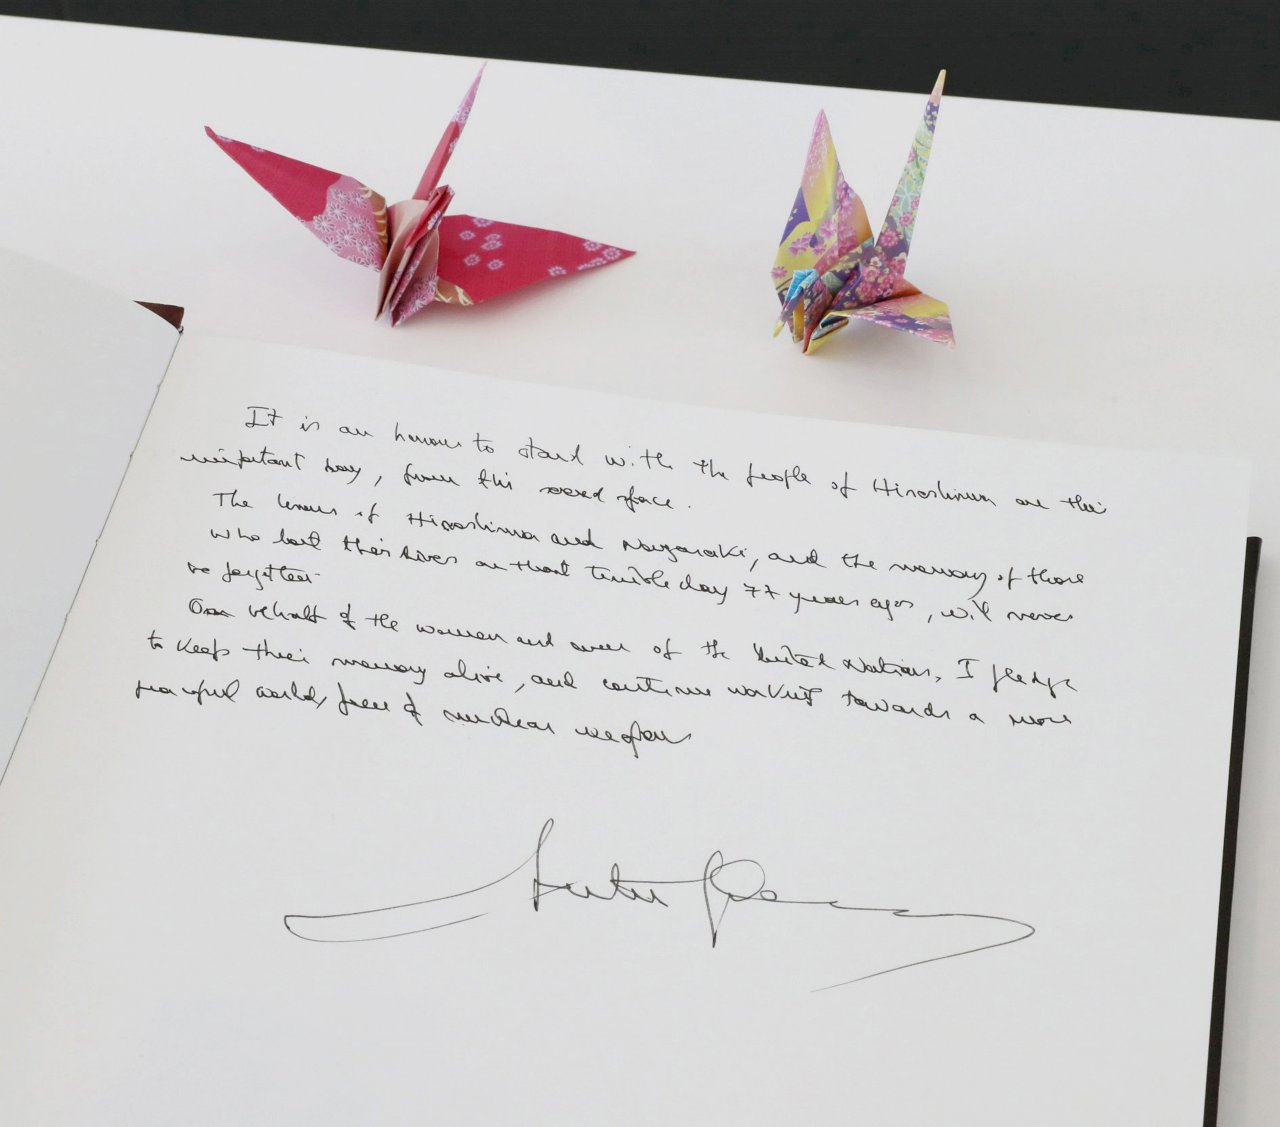 It is an honour to stand with the people of Hiroshima on this
important day, from this sacred place.
The lessons of Hiroshima and Nagasaki, and the memory of those
who lost their lives on that terrible day 77 years ago, will never
be forgotten.
On behalf of the women and men of the United Nations, I pledge
to keep their memory alive, and continue working towards a more
peaceful world, free of nuclear weapons